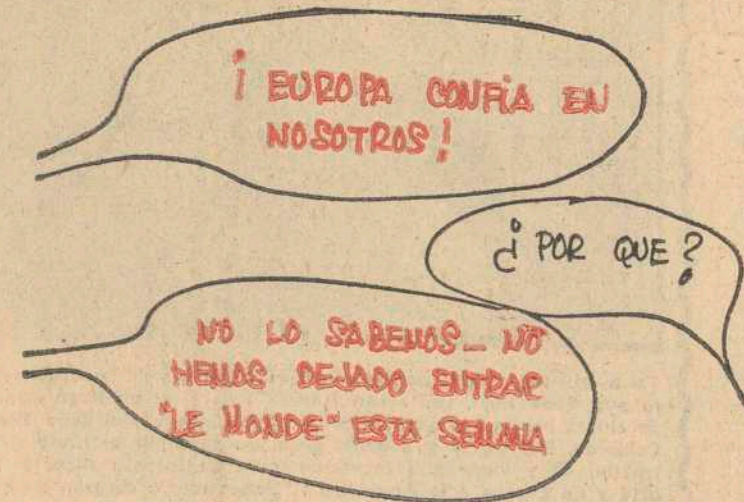 ¡EUROPA CONFÍA EN
NOSOTROS!
¿POR QUE?
NO LO SABEMOS_ NO
HEMOS DEJADO ENTRAR
"LE MONDE" ESTA SEMANA